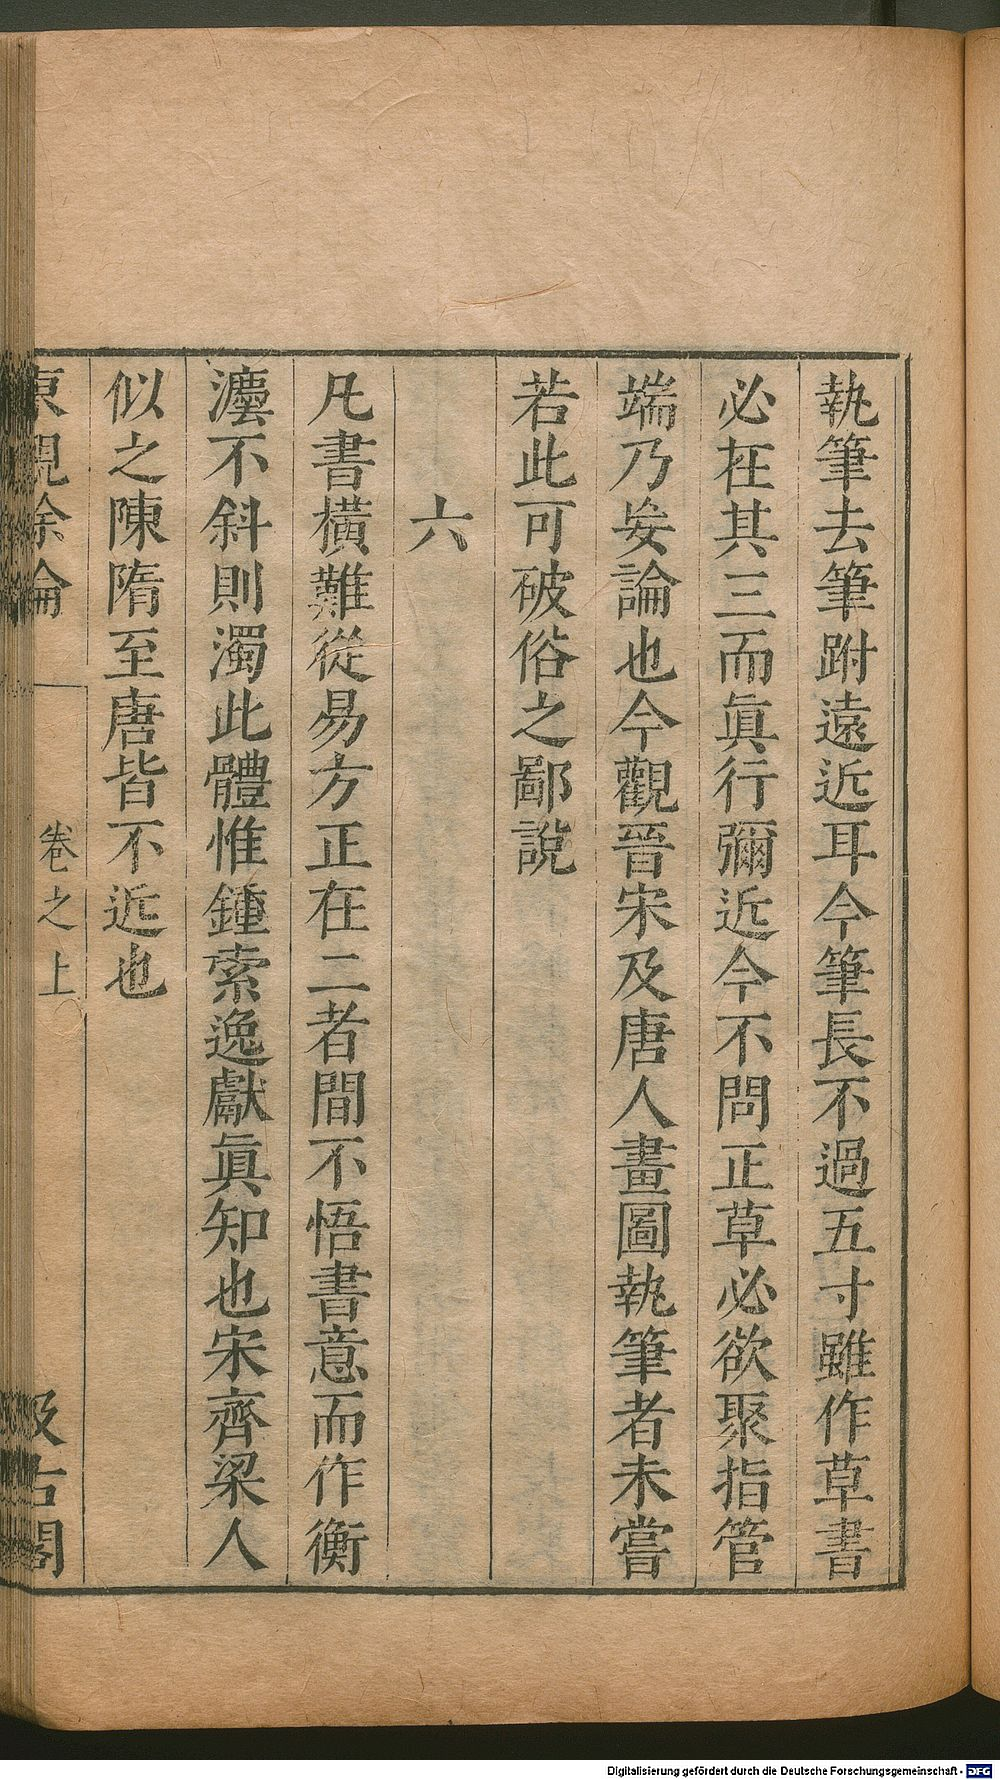 執筆去筆跗遠近耳今筆長不過五寸雖作草書
必在其三而眞行彌近今不問正草必欲聚指管
端乃妄論也今觀晉宋及唐人畫圖執筆者未嘗
若此可破俗之鄙說
六
凡書橫難從易方正在二者間不悟書意而作衡
灋不斜則濁此體惟鍾索逸獻眞知也宋齊梁人
似之陳隋至唐皆不近也
東觀餘論
卷之上
汲古閣
Digitalisierung gefördert durch die Deutsche Forschungsgemeinschaft - DFG